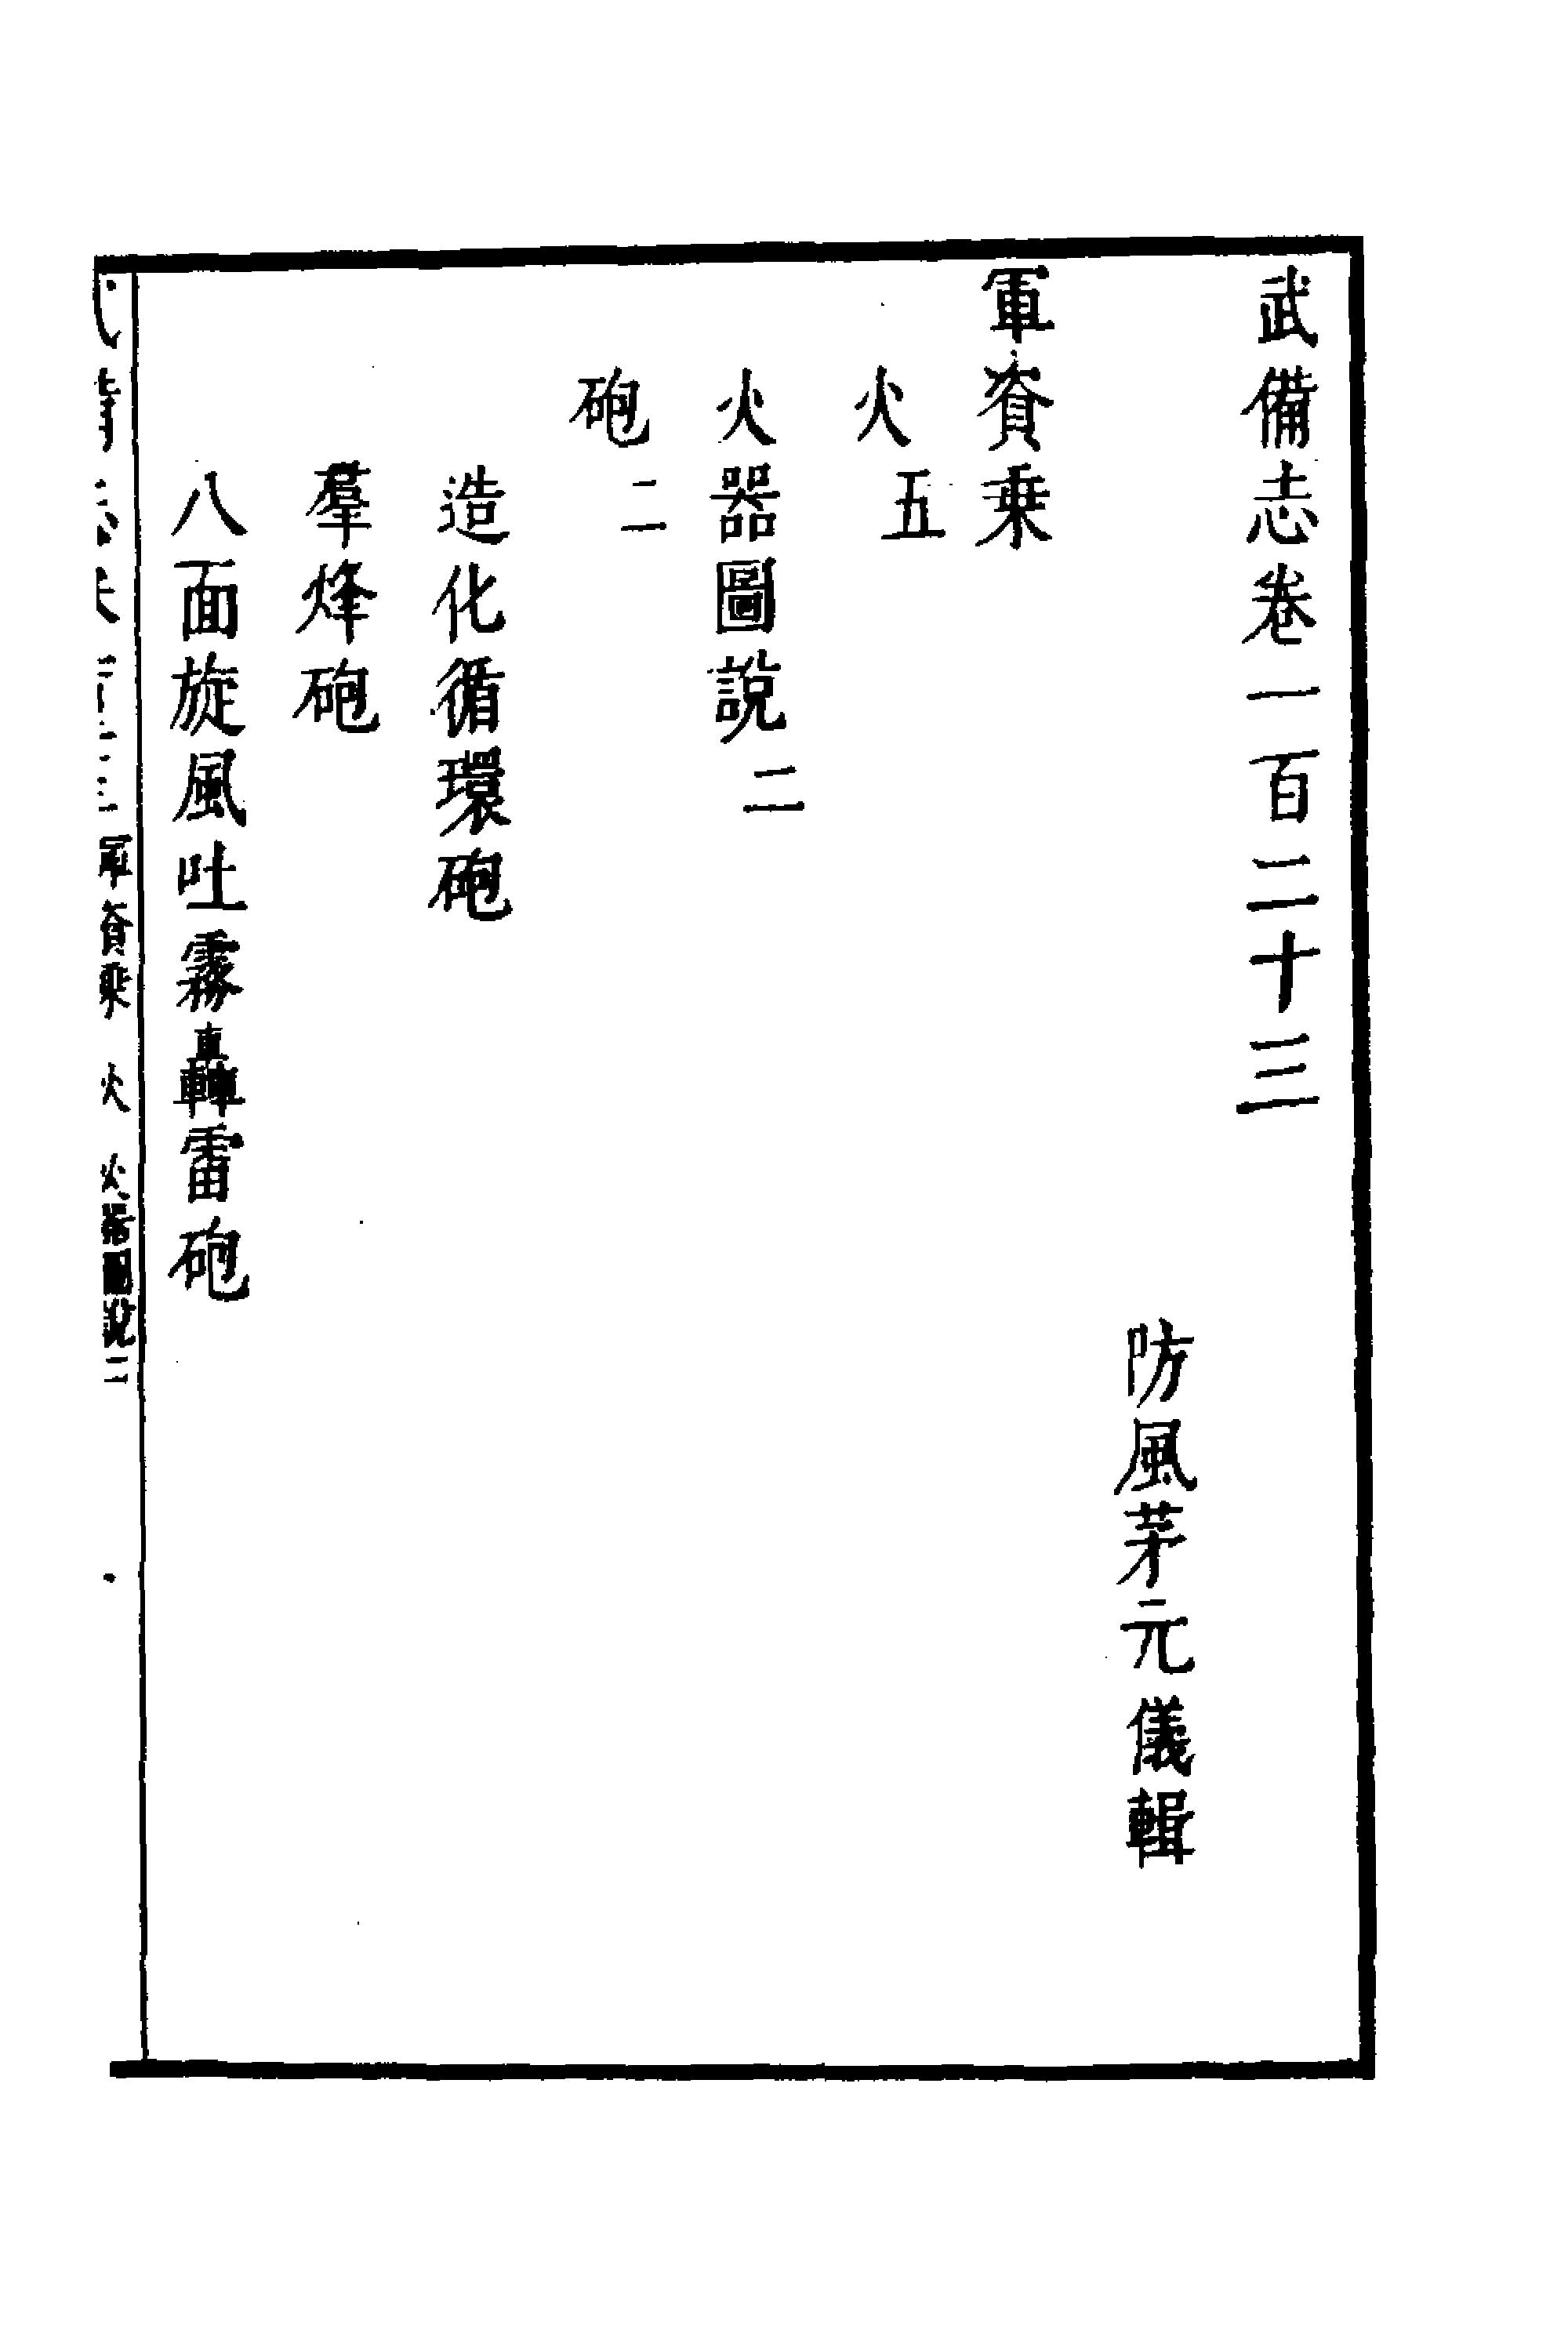 武備志卷一百二十三
防風茅元儀輯
軍資乗
火五
火器圖說二
砲二
造化循環砲
羣烽砲
八面旋風吐霧轟雷砲
軍資乗 火 火器圖說二